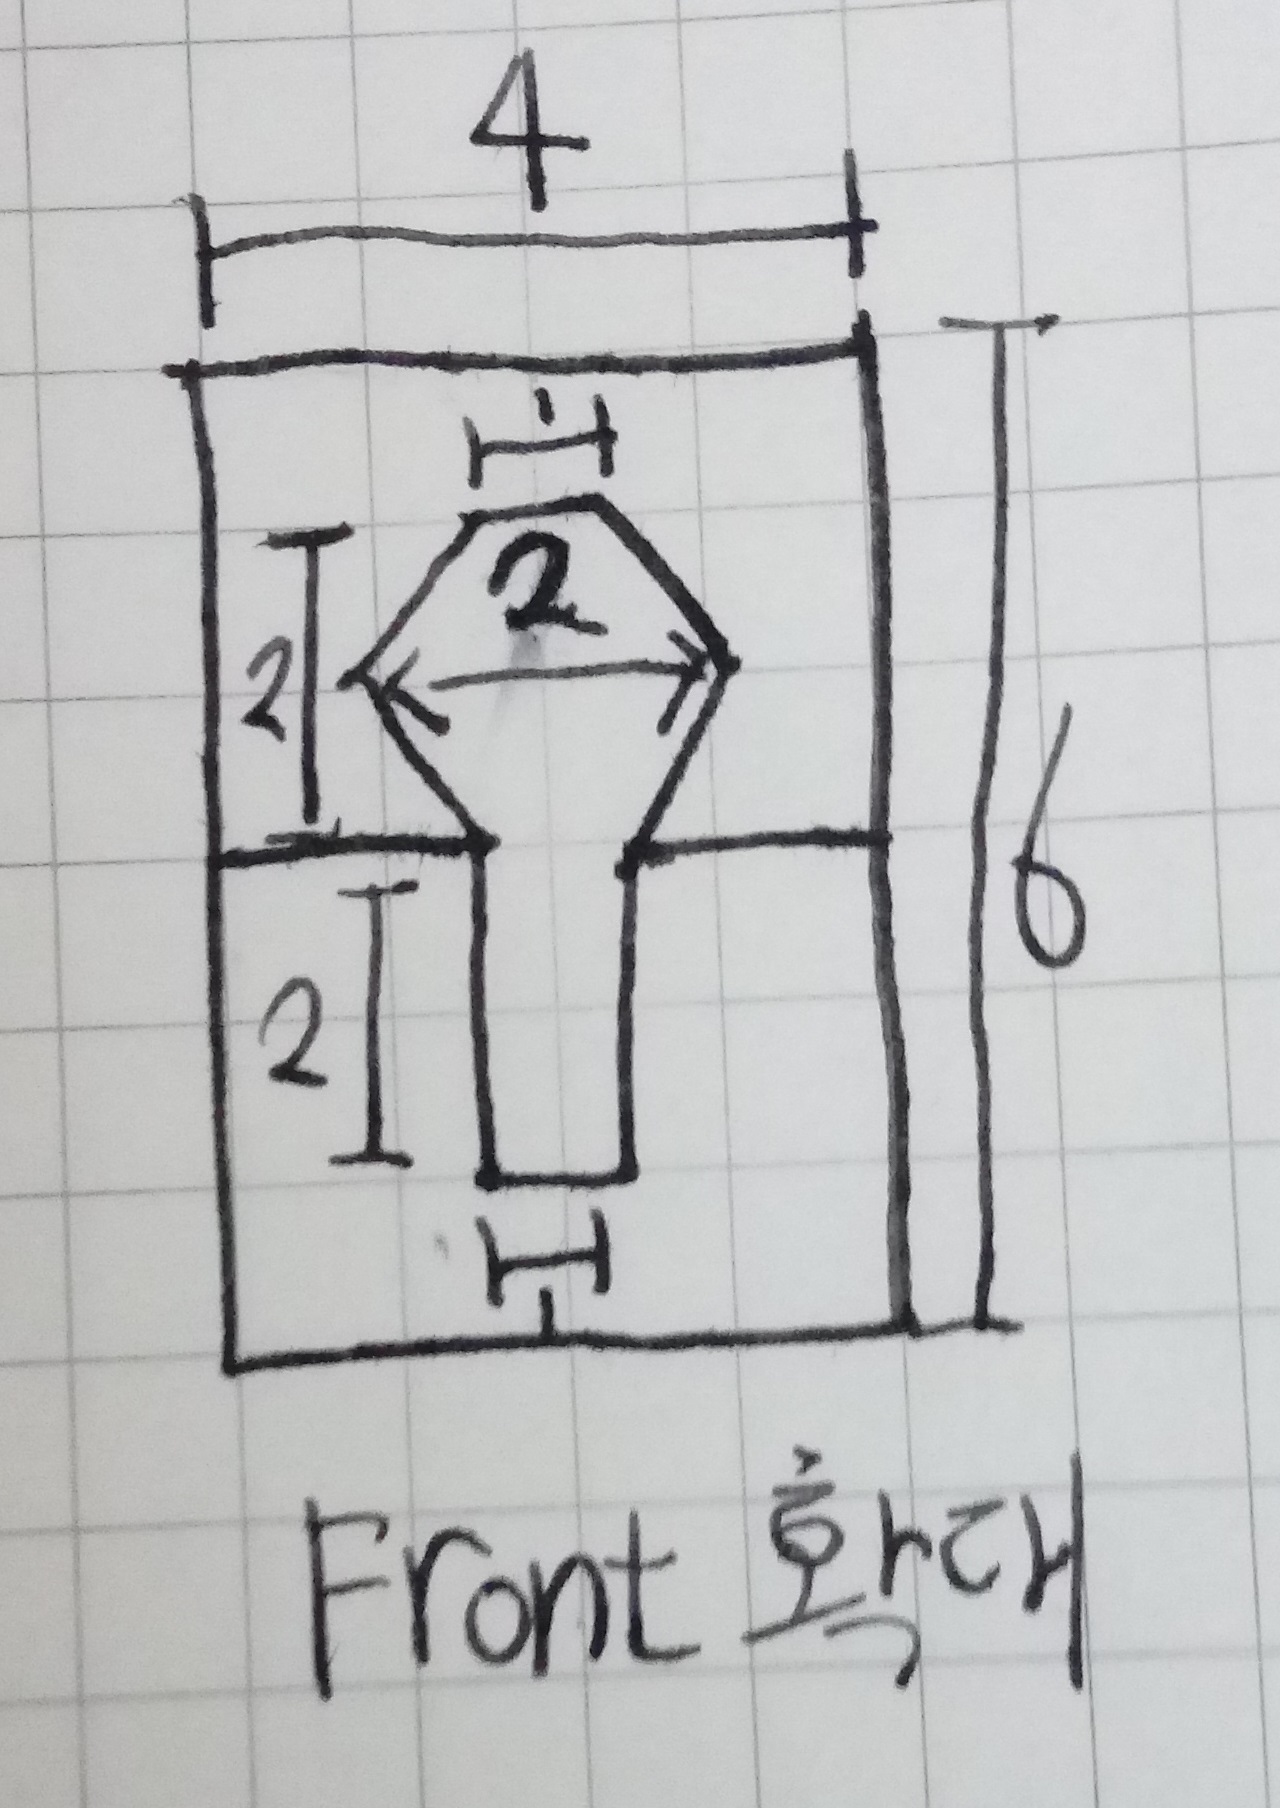 4
1
2
2
6
2
1
Front 확대